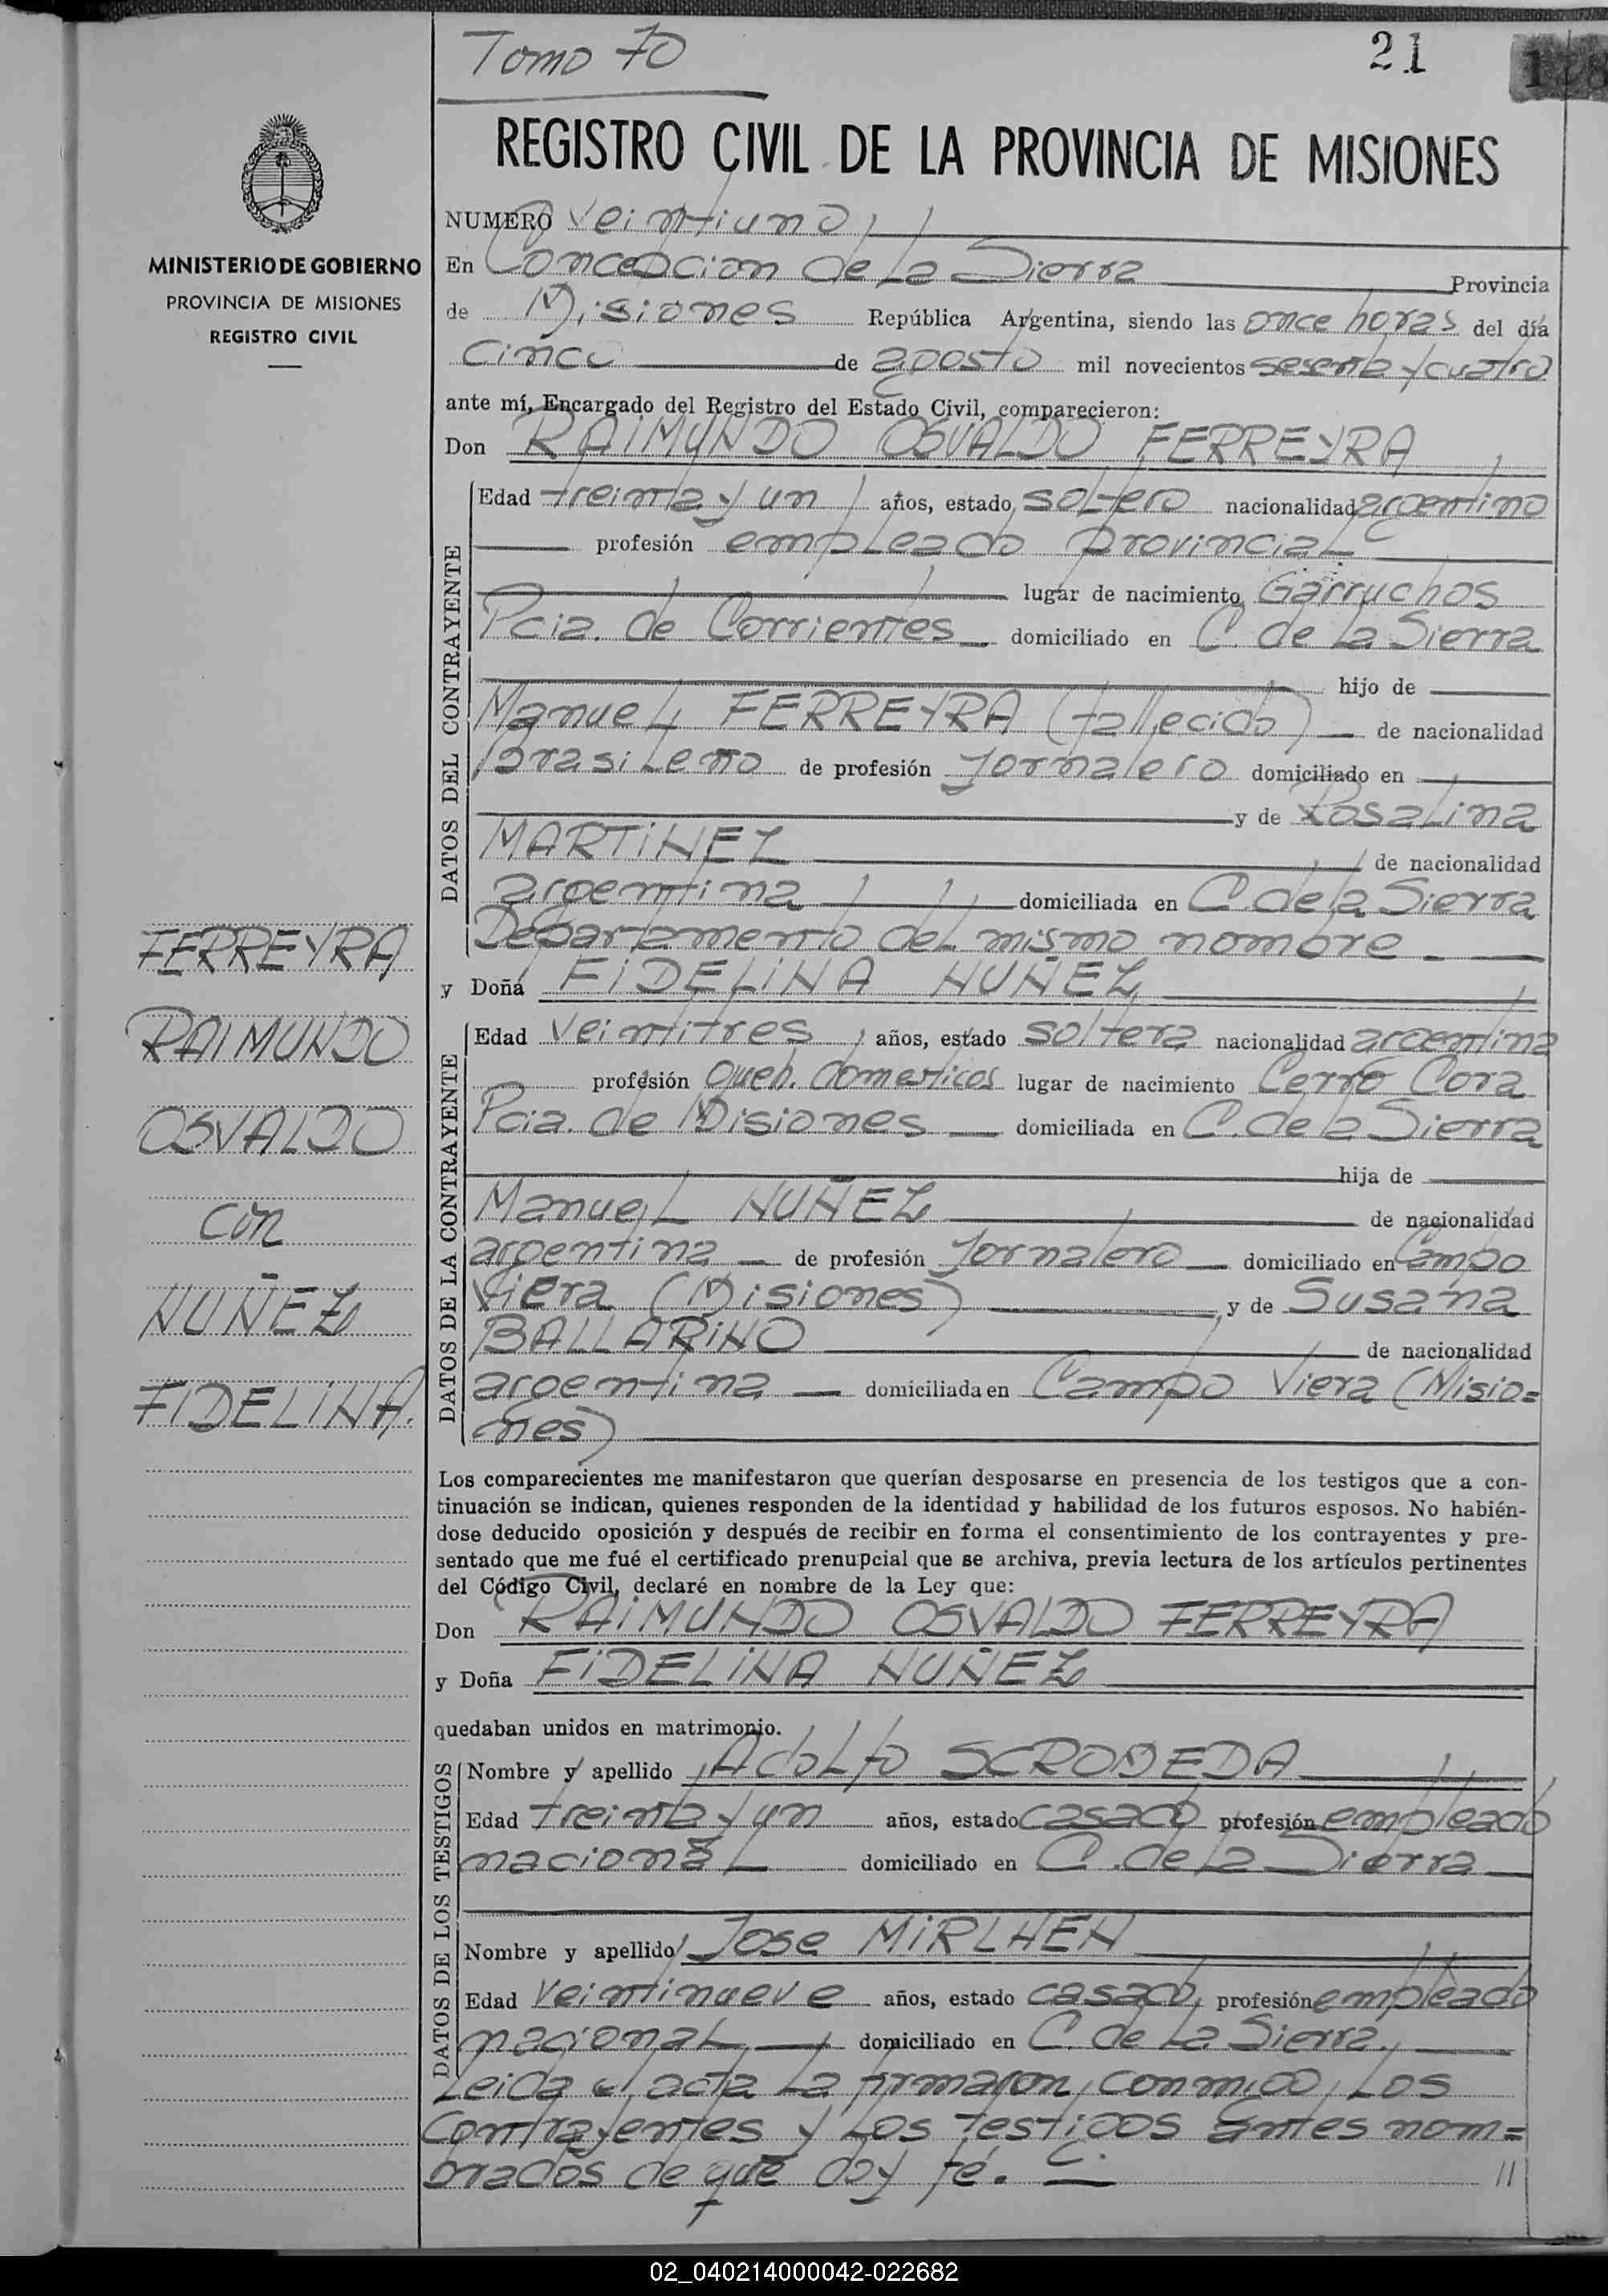 Tomo 70
21
REGISTRO CIVIL DE LA PROVINCIA DE MISIONES
MINISTERIO DE GOBIERNO
PROVINCIA DE MISIONES
REGISTRO CIVIL
NUMERO veintiuno
En Concepcion de la Sierra Provincia
de Misiones República Argentina, siendo las once horas del día
cinco de agosto mil novecientos sesenta y cuatro
ante mí, Encargado del Registro del Estado Civil, comparecieron:
Don RAIMUNDO OSVALDO FERREYRA
DATOS DEL CONTRAYENTE
Edad treinta y un años, estado soltero nacionalidad argentino
profesión empleado provincial
lugar de nacimiento Garruchos
Pcia. de Corrientes domiciliado en C. de la Sierra
hijo de
Manuel FERREYRA (fallecido) de nacionalidad
brasileño de profesión Jornalero domiciliado en
y de Rosalina
MARTINEZ de nacionalidad
argentina domiciliada en C de la Sierra
Departamento del mismo nombre.
y Doña FIDELINA NUÑEZ
DATOS DE LA CONTRAYENTE
Edad veintitres años, estado soltera nacionalidad argentina
profesión Queh. domesticos lugar de nacimiento Cerro Cora
Pcia. de Misiones domiciliada en C. de la Sierra
hija de
Manuel NUÑEZ de nacionalidad
argentina de profesión Jornalero domiciliado en Campo
Viera (Misiones) y de Susana
BALLARINO de nacionalidad
argentina domiciliada en Campo Viera (Misio=
nes)
FERREYRA
RAIMUNDO
OSVALDO
con
NUÑEZ
FIDELINA.
Los comparecientes me manifestaron que querían desposarse en presencia de los testigos que a con-
tinuación se indican, quienes responden de la identidad y habilidad de los futuros esposos. No habién-
dose deducido oposición y después de recibir en forma el consentimiento de los contrayentes y pre-
sentado que me fué el certificado prenupcial que se archiva, previa lectura de los artículos pertinentes
del Código Civil, declaré en nombre de la Ley que:
Don RAIMUNDO OSVALDO FERREYRA
y Doña FIDELINA NUÑEZ
quedaban unidos en matrimonio.
DATOS DE LOS TESTIGOS
Nombre y apellido Adolfo SCROMEDA
Edad treinta y un años, estado casado profesión empleado
nacional domiciliado en C. de la Sierra
Nombre y apellido Jose MIRLHEN
Edad veintinueve años, estado casado, profesión empleado
nacional domiciliado en C. de la Sierra.
Leida el acta la firmaron conmigo, los
contrayentes y los testigos antes nom=
brados de que doy fé.
02_040214000042-022682